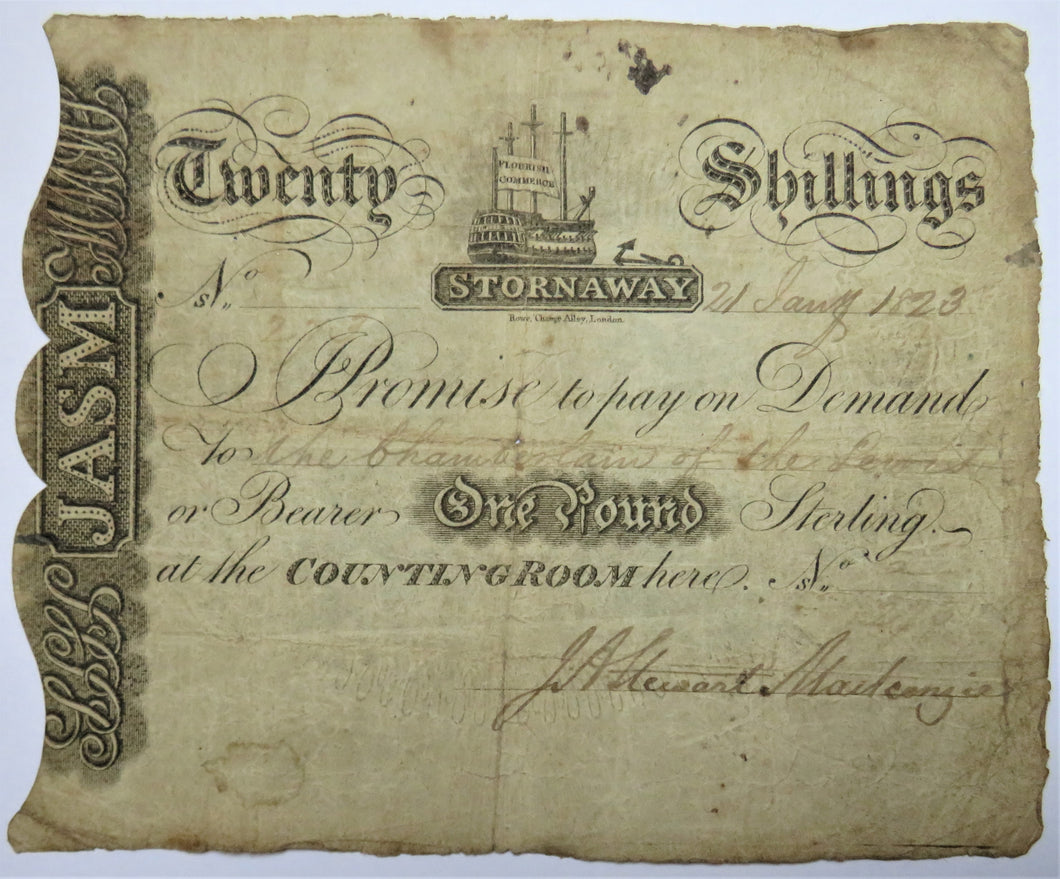 Twenty Shillings
FLOURISH
COMMERCE
STORNAWAY
No 21 Jany 1823
Rowe, Change Alley, London.
I Promise to pay on Demand
To the Chamberlain of the Lewis
or Bearer One Pound Sterling.
at the COUNTING ROOM here. No
J A Stewart Mackenzie
JASM